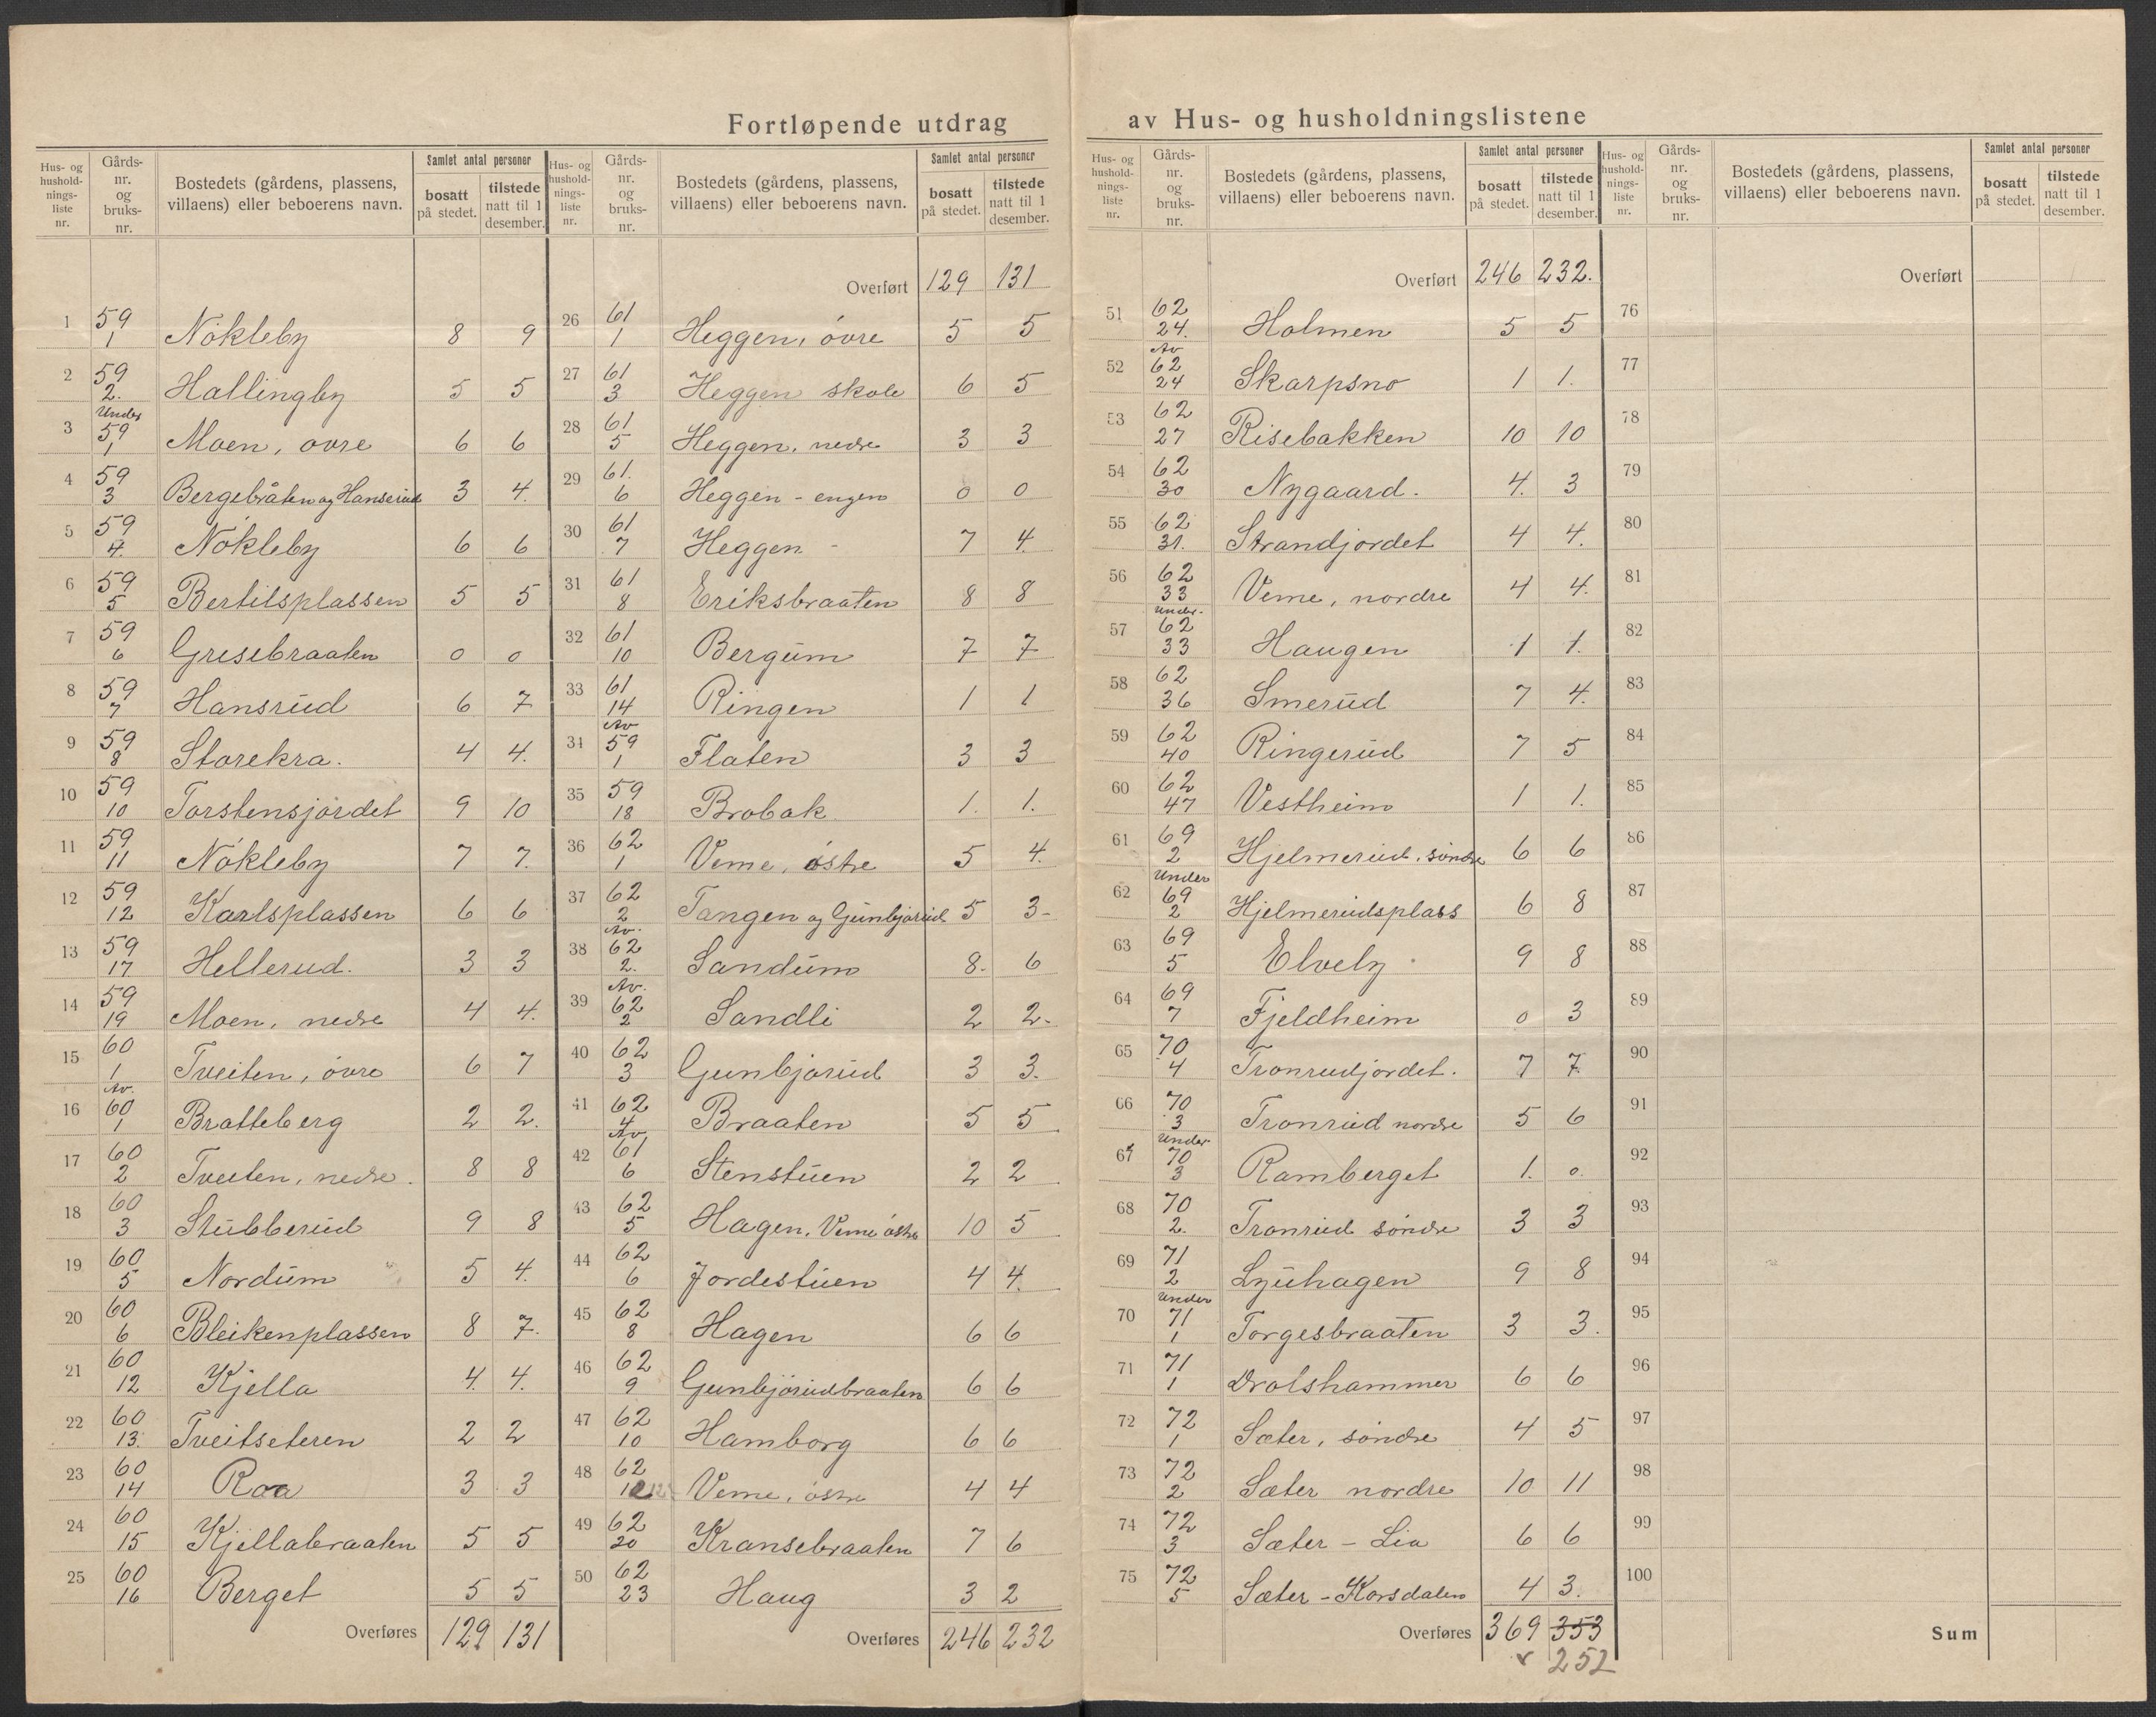 Fortløpende utdrag av Hus- og husholdningslistene
Hus- og hushold-nings-liste nr. | Gårds-nr. og bruks-nr. | Bostedets (gårdens, plassens, villaens) eller beboerens navn. | Samlet antal personer | bosatt på stedet. | tilstede natt til 1 desember.
1 59/1 Nökleby 8 9
2 59/2. Hallingby 5 5
3 Under 59/1 Moen, ovre 6 6
4 59/3 Bergebråten og Hanserud 3 4.
5 59/4. Nökleby 6 6
6 59/5 Bertilsplassen 5 5
7 59/6 Gresebraaten 0 0
8 59/7 Hansrud 6 7
9 59/8 Storekra. 4 4.
10 59/10 Torstensjordet 9 10
11 59/11 Nökleby 7 7.
12 59/12 Karlsplassen 6 6
13 59/17 Hellerud. 3 3
14 59/19 Moen, nedre 4 4.
15 60/1 Tveiten, övre 6 7
16 Av. 60/1 Bratteberg 2 2.
17 60/2 Tveiten, nedre. 8 8
18 60/3 Stubberud 9 8
19 60/5 Nordum 5 4.
20 60/6 Bleikenplassen 8 7.
21 60/12 Kjella 4. 4.
22 60/13. Tveitseteren 2 2
23 60/14 Roa 3 3
24 60/15 Kjellabraaten 5 5
25 60/16 Berget 5 5
Overføres 129 131
Hus- og hushold-nings-liste nr. | Gårds-nr. og bruks-nr. | Bostedets (gårdens, plassens, villaens) eller beboerens navn. | Samlet antal personer | bosatt på stedet. | tilstede natt til 1 desember.
Overført 129 131
26 61/1 Heggen, övre 5 5
27 61/3 Heggen skole 6 5
28 61/5 Heggen, nedre 3 3
29 61./6 Heggen - engen 0 0
30 61/7 Heggen - 7 4.
31 61/8 Eriksbraaten 8 8
32 61/10 Bergum 7 7
33 61/14 Ringen 1 1
34 Av 59/1 Flaten 3 3
35 59/18 Brobak 1. 1.
36 62/1 Veme, östre 5 4.
37 62/2 Tangen og Gunbjörud 5 3-
38 Av. 62/2. Sandum 8. 6
39 Av. 62/2 Sandli 2 2-
40 62/3 Gunbjörud 3 3.
41 62/4 Braaten 5 5
42 Av 61/6 Stenstuen 2 2
43 62/5 Hagen, Veme östre 10 5
44 62/6 Jordestuen 4 4.
45 62/8 Hagen 6 6
46 62/9 Gunbjörudbraaten 6 6
47 62/10 Hamborg 6 6
48 62/12 Veme, östre 4 4
49 62/20 Kransebraaten 7 6
50 62/23 Haug 3 2
Overføres 246 232
Hus- og hushold-nings-liste nr. | Gårds-nr. og bruks-nr. | Bostedets (gårdens, plassens, villaens) eller beboerens navn. | Samlet antal personer | bosatt på stedet. | tilstede natt til 1 desember.
Overført 246 232.
51 62/24. Holmen 5 5
52 Av 62/24 Skarpsno 1 1.
53 62/27 Risebakken 10 10
54 62/30 Nygaard. 4. 3
55 62/31. Strandjordet 4 4.
56 62/33 Veme, nordre 4 4.
57 Under. 62/33 Haugen 1 1.
58 62/36 Smerud 7 4.
59 62/40 Ringerud 7 5
60 62/47 Vestheim 1 1.
61 69/2 Hjelmerud, söndre 6 6
62 Under 69/2 Hjelmerudsplass 6 8
63 69/5 Elvely 9 8
64 69/7 Fjeldheim 0 3
65 70/4 Tronrudjordet. 7 7.
66 70/3 Tronrud nordre 5 6
67 Under 70/3 Ramberget 1. 0.
68 70/2. Tronrud söndre 3 3
69 71/2 Lyuhagen 9 8
70 Under 71/1 Torgesbraaten 3 3.
71 71/1 Drolshammer 6 6
72 72/1 Sæter, söndre 4 5
73 72/2 Sæter nordre 10 11
74 72/3 Sæter - Lia 6 6
75 72/5 Sæter - Korsdalen 4 3.
Overføres 369 353
v 252
Hus- og hushold-nings-liste nr. | Gårds-nr. og bruks-nr. | Bostedets (gårdens, plassens, villaens) eller beboerens navn. | Samlet antal personer | bosatt på stedet. | tilstede natt til 1 desember.
Overført
76
77
78
79
80
81
82
83
84
85
86
87
88
89
90
91
92
93
94
95
96
97
98
99
100
Sum